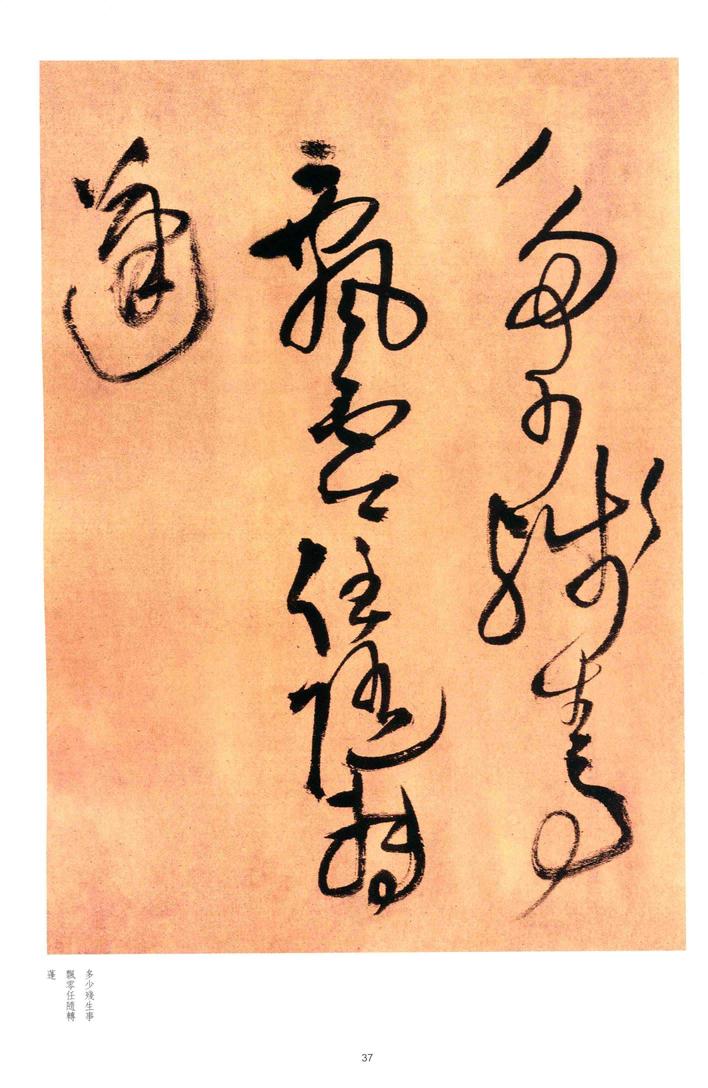 多少殘生事
飄零任隨轉
蓬
多少殘生事
飄零任隨轉
蓬
37